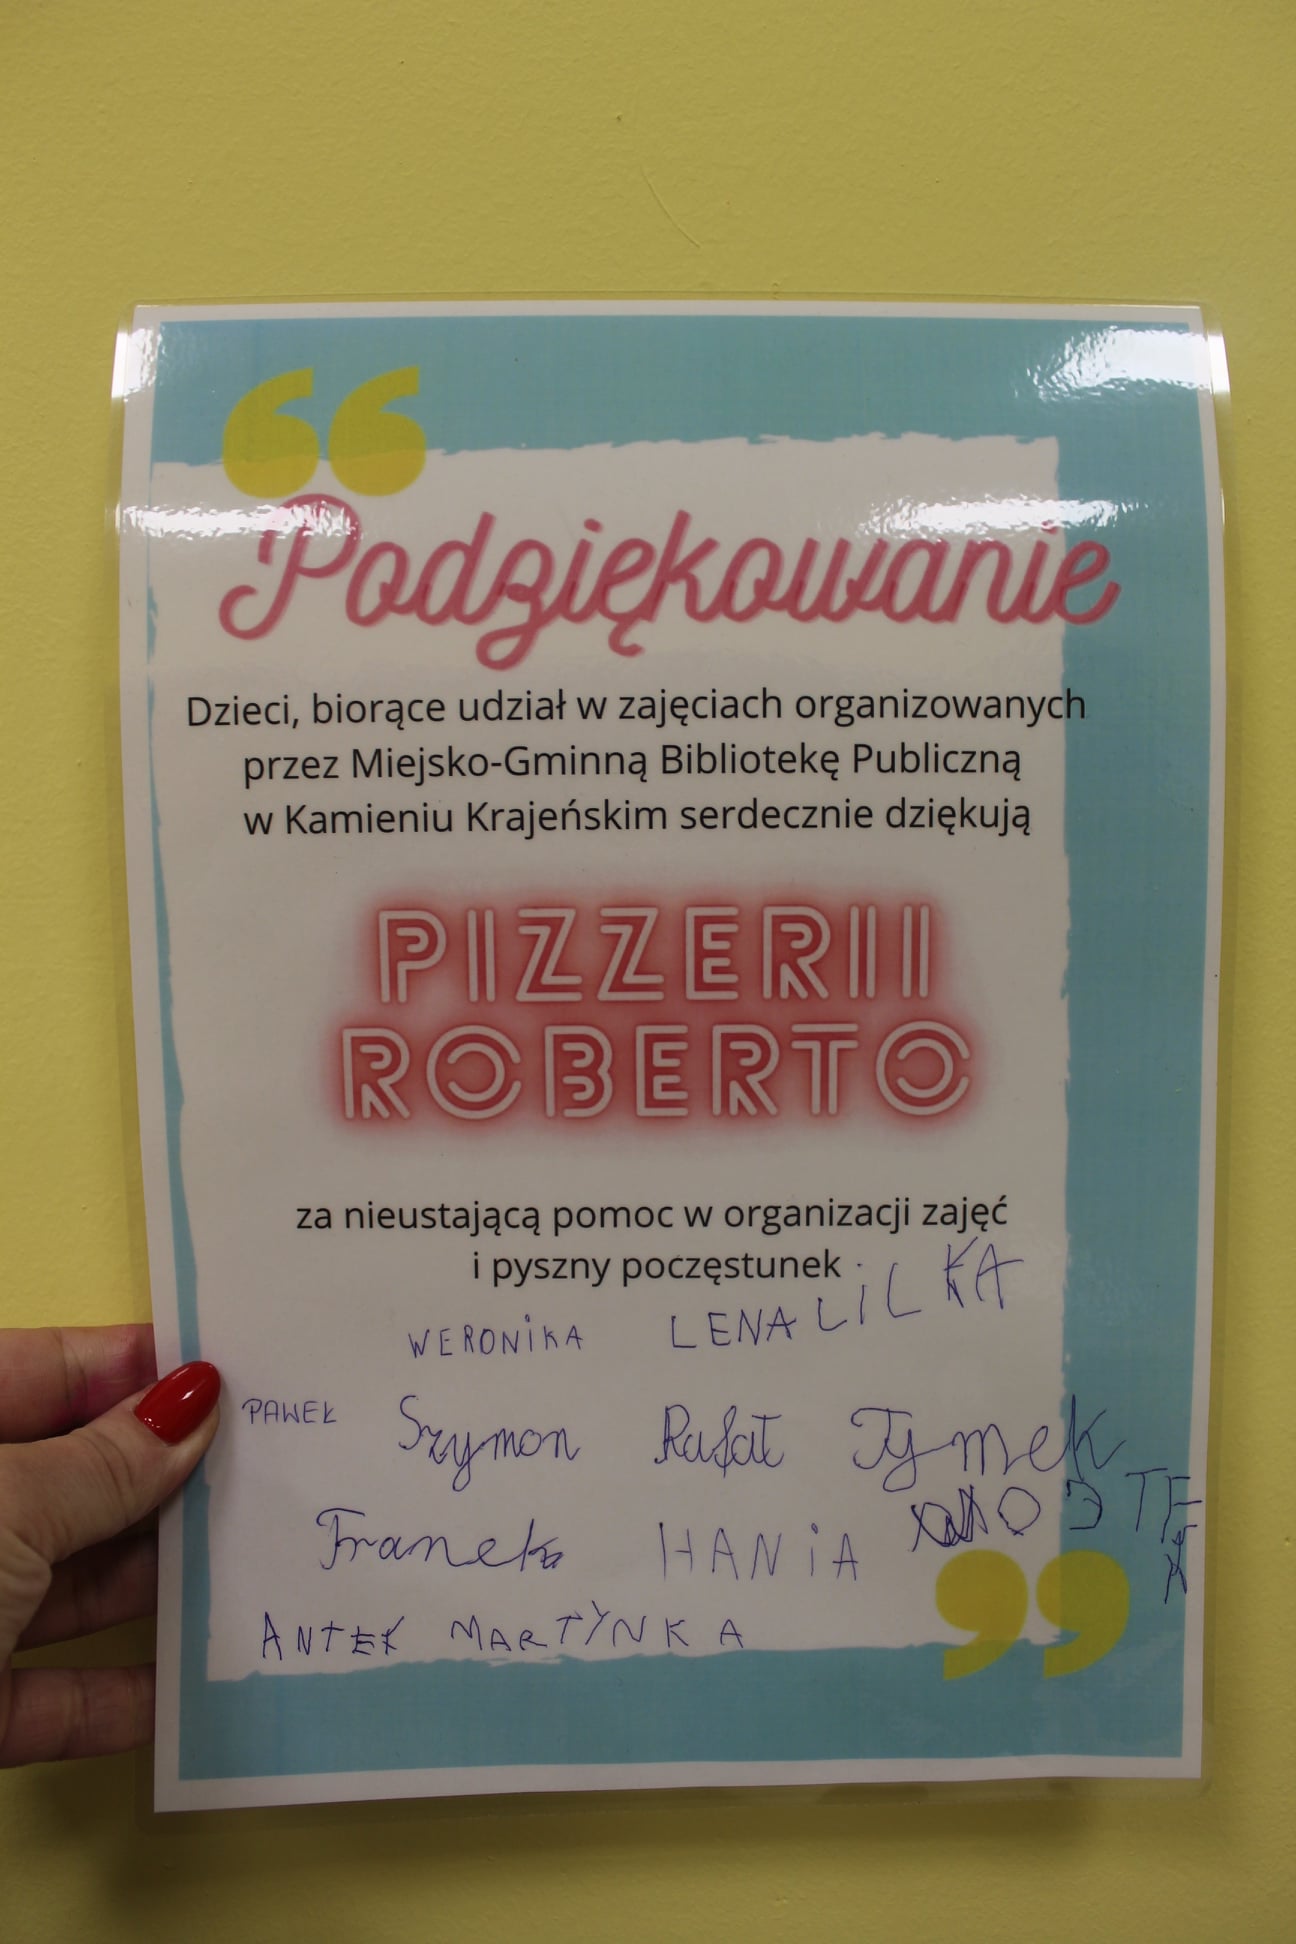 Podziękowanie
Dzieci, biorące udział w zajęciach organizowanych
przez Miejsko-Gminną Bibliotekę Publiczną
w Kamieniu Krajeńskim serdecznie dziękują
PIZZERII
ROBERTO
za nieustającą pomoc w organizacji zajęć
i pyszny poczęstunek
WERONiKA LENA LiLKA
PAWEŁ Szymon Rafał Tymek
Franek HANiA
ANTEK MARTYNKA